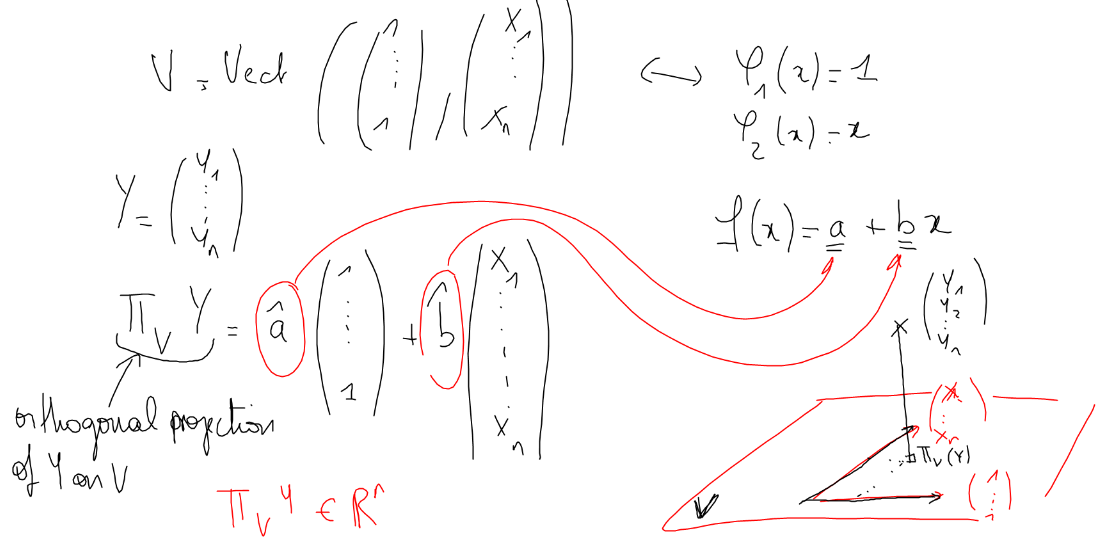 V = Vect ( ( 1 ⋮ 1 ) , ( X_1 ⋮ X_n ) ) ⟷ φ_1(x) = 1
φ_2(x) = x
Y = ( Y_1 ⋮ Y_n )
f(x) = a + b x
Π_V Y = â ( 1 ⋮ 1 ) + b̂ ( X_1 ⋮ X_n )
( Y_1 Y_2 ⋮ Y_n )
orthogonal projection
of Y on V
Π_V Y ∈ R^n
( X_1 ⋮ X_n )
Π_V(Y)
( 1 ⋮ 1 )
V